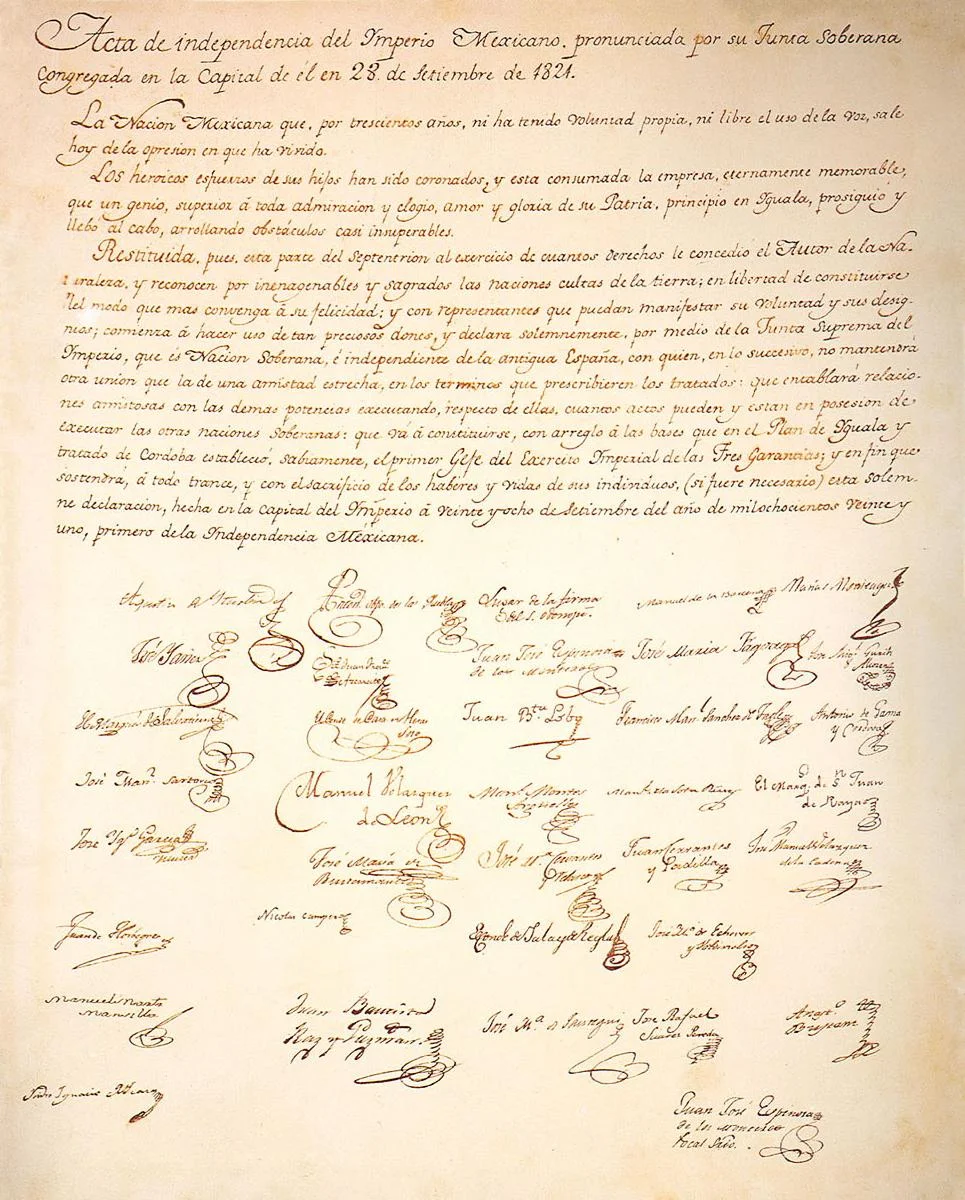 Acta de independencia del Ymperio Mexicano, pronunciada por su Junta Soberana
congregada en la Capital de él en 28 de Setiembre de 1821.
La Nacion Mexicana que, por trescientos años, ni ha tenido voluntad propia, ni libre el uso de la voz, sale
hoy de la opresion en que ha vivido.
Los heroicos esfuerzos de sus hijos han sido coronados, y esta consumada la empresa, eternamente memorable,
que un genio, superior á toda admiracion y elogio, amor y gloria de su Patria, principio en Iguala, prosiguio y
llebó al cabo, arrollando obstáculos casi insuperables.
Restituida, pues, esta parte del Septentrion al exercicio de cuantos derechos le concedió el Autor de la Na-
uraleza, y reconocen por inenagenables y sagrados las naciones cultas de la tierra; en libertad de constituirse
del modo que mas convenga á su felicidad; y con representantes que puedan manifestar su voluntad y sus desig-
nios; comienza á hacer uso de tan preciosos dones, y declara solemnemente, por medio de la Junta Suprema del
Ymperio, que és Nacion Soberana, é independiente de la antigua España, con quien, en lo succesivo, no mantendrá
otra union que la de una amistad estrecha, en los terminos que prescribieren los tratados: que entablará relacio-
nes amistosas con las demas potencias executando, respecto de ellas, cuantos actos pueden y estan en posesion de
executar las otras naciones Soberanas: que vá á constituirse, con arreglo á las bases que en el Plan de Iguala y
tratado de Cordoba estableció, sabiamente, el primer Gefe del Exercito Ymperial de las Tres Garantias; y en fin que
sostendrá, á todo trance, y con el sacrificio de los haberes y vidas de sus individuos, (si fuere necesario) esta solem-
ne declaracion, hecha en la Capital del Ymperio á veinte y ocho de Setiembre del año de mil ochocientos veinte y
uno, primero de la Independencia Mexicana.
Agustin de Iturbide Anton. Obpo. de la Puebla Lugar de la firma Manuel de la Barcena Matias Monteagudo
del S. Odonojú
José Yañez Juan José Espinosa José Maria Fagoaga
de los Monteros
Juan Bta. Lobo Francisco Man. Sanchez de Tagle Antonio de Gama
y Cordova
José Man. Sartorio Manuel Velazquez El Marq. de Sn. Juan
de Leon de Rayas
José Ygn. Garcia José Maria de José Ma. Cervantes Juan Cervantes José Manuel Velazquez
Bustamante y Padilla de la Cadena
Nicolas Campero
Manuel Montes Juan Bautista José Rafael
Raz y Guzman Suarez Pereda
Juan José Espinosa
de los Monteros
Vocal Srio.